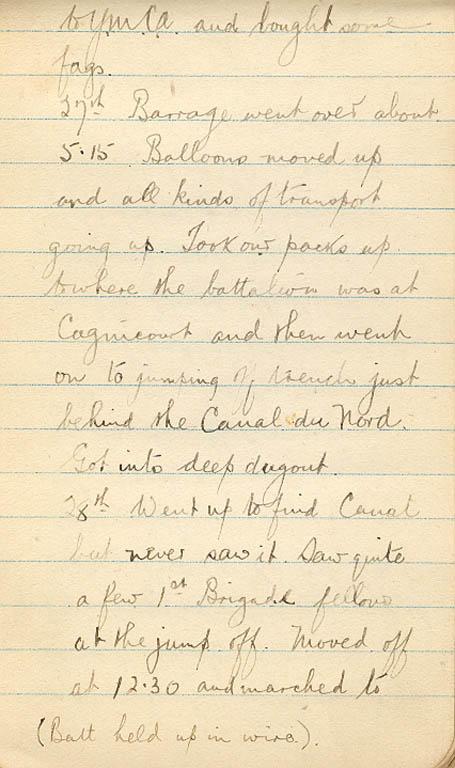 to Y.M.C.A. and bought some
fags.
27th Barrage went over about
5.15 Balloons moved up
and all kinds of transport
going up. Took our packs up
to where the battalion was at
Cagnicourt and then went
on to jumping off trench just
behind the Canal du Nord.
Got into deep dugout.
28th Went up to find Canal
but never saw it. Saw quite
a few 1st Brigade fellows
at the jump off. Moved off
at 12.30 and marched to
(Batt held up in wire.).